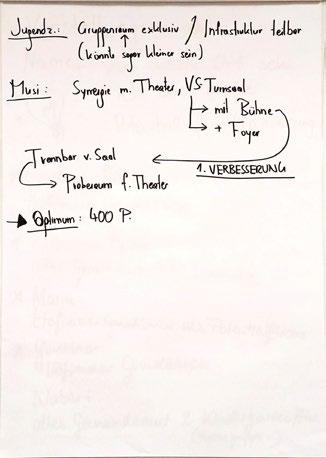 Jugendz.: Gruppenraum exklusiv / Infrastuktur teilbar
(könnte sogar kleiner sein)
Musi: Synergie m. Theater, VS Turnsaal
→ mit Bühne
→ + Foyer
Trennbar v. Saal
1. VERBESSERUNG
→ Proberaum f. Theater
→ Optimum: 400 P.